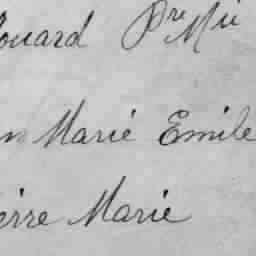 ouard Pre Mie
n Marie Emile
ierre Marie